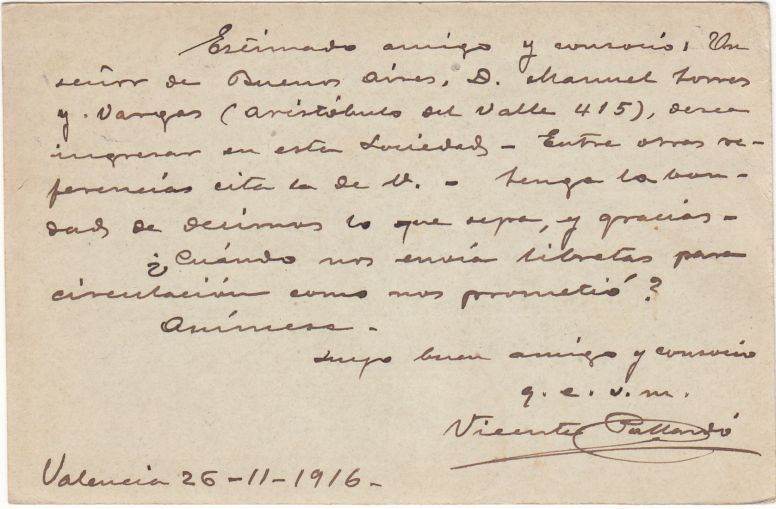 Estimado amigo y consocio: Un
señor de Buenos Aires, D. Manuel Torres
y Vargas (Aristóbulo del Valle 415), desea
ingresar en esta Sociedad – Entre otras re-
ferencias cita la de V. – Tenga la bon-
dad de decirnos lo que sepa, y gracias –
¿Cuándo nos envía libretas para
circulación como nos prometió?
Anímese –
Suyo buen amigo y consocio
q. e. s. m.
Vicente
Valencia 26–11–1916 –